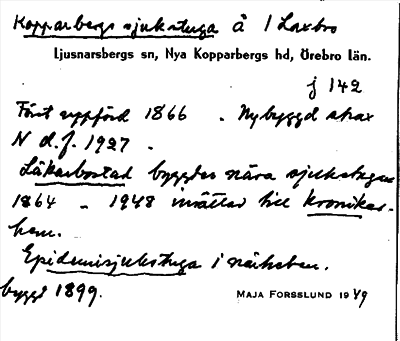 Kopparbergs sjukstuga å 1 Laxbro
Ljusnarsbergs sn, Nya Kopparbergs hd, Örebro län.
j 142
Först uppförd 1866 . Nybyggd strax
N d.f. 1927 .
Läkarbostad byggdes nära sjukstugan
1864 - 1948 inrättad till kroniker-
hem.
Epidemisjukstuga i närheten.
byggt 1899.
MAJA FORSSLUND 1949